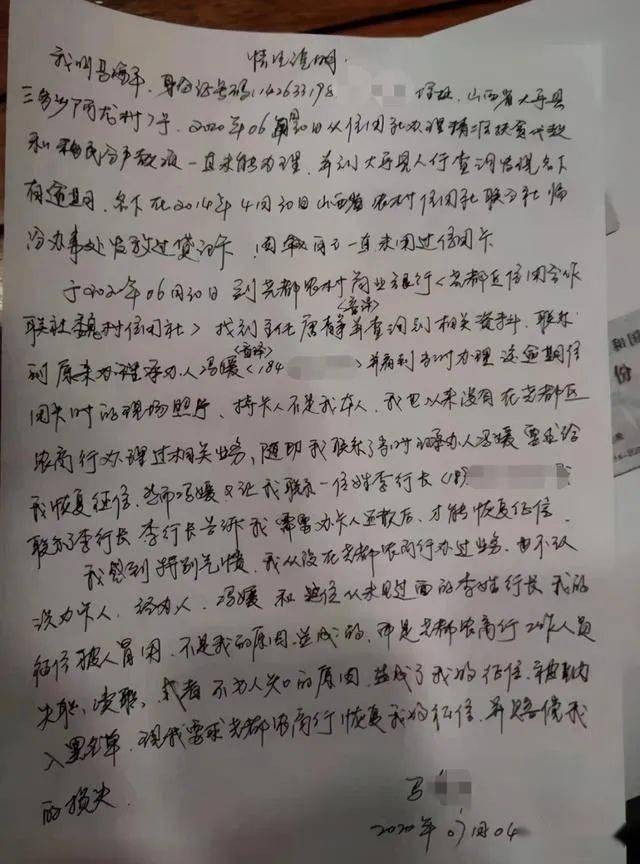 情况说明
我叫马海平，身份证号码：142633198 住址，山西省大宁县
三多乡阿龙村7号，2020年06月30日从信用社办理精准扶贫贷款
和移民分户放液一直未能办理，并到大宁县人行查询发现名下
有逾期，名下在2014年4月30日山西省农村信用社联合社临
汾办事处发放过贷记卡，因我一直未用过信用卡
于2020年06月30日到尧都农村商业银行<尧都区信用合作
联社魏村信用社>找到主任唐静<音译>并查询到相关资料，联系
到原来办理承办人冯媛<音译><184 >并看到当时办理该逾期信
用卡时的现场照片，持卡人不是我本人，我也从来没有在尧都区
农商行办理过相关业务，随即我联系了当时的承办人冯媛要求给
我恢复征信，然而冯媛又让我联系一位姓李行长<189
联系了李行长李行长告诉我需要办卡人还款后，才能恢复征信。
我感到特别气愤，我从没在尧都农商行办过业务，也不认
识办卡人，经办人，冯媛和这位从未见过面的李姓行长，我的
征信被人冒用，不是我的原因造成的，那是尧都农商行工作人员
失职，渎职，或者不为人知的原因，造成了我的征信，被纳
入黑名单，现我要求尧都农商行恢复我的征信，并赔偿我
的损失。
马
2020年07月04
和国
份